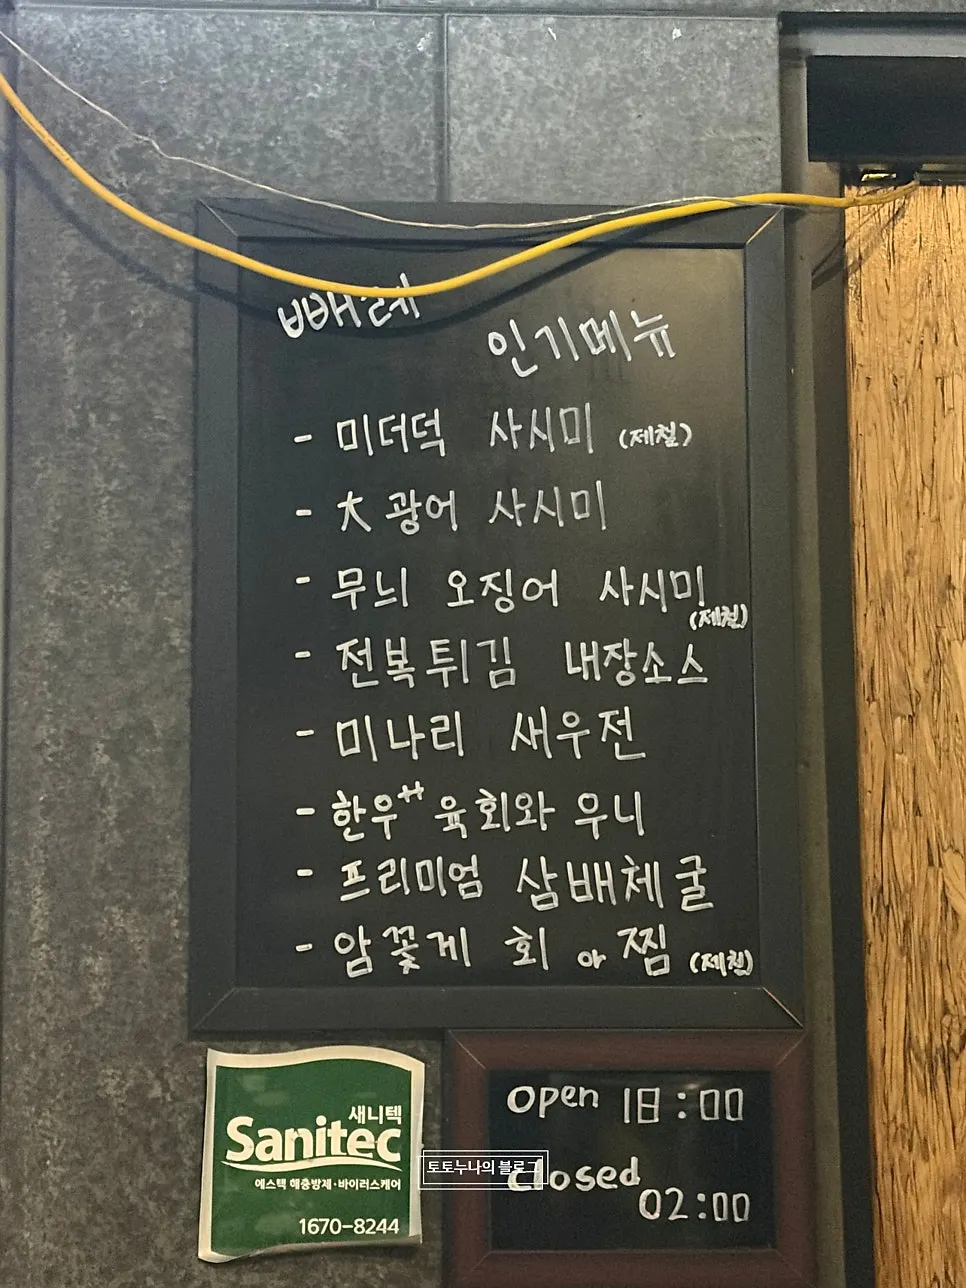 빠레
인기메뉴
- 미더덕 사시미 (제철)
- 大 광어 사시미
- 무늬 오징어 사시미
(제철)
- 전복튀김 내장소스
- 미나리 새우전
- 한우++ 육회와 우니
- 프리미엄 삼배체 굴
- 암꽃게 회 or 찜 (제철)
새니텍
Sanitec
에스텍 해충방제·바이러스케어
1670-8244
Open 18:00
Closed
02:00
토토누나의 블로그